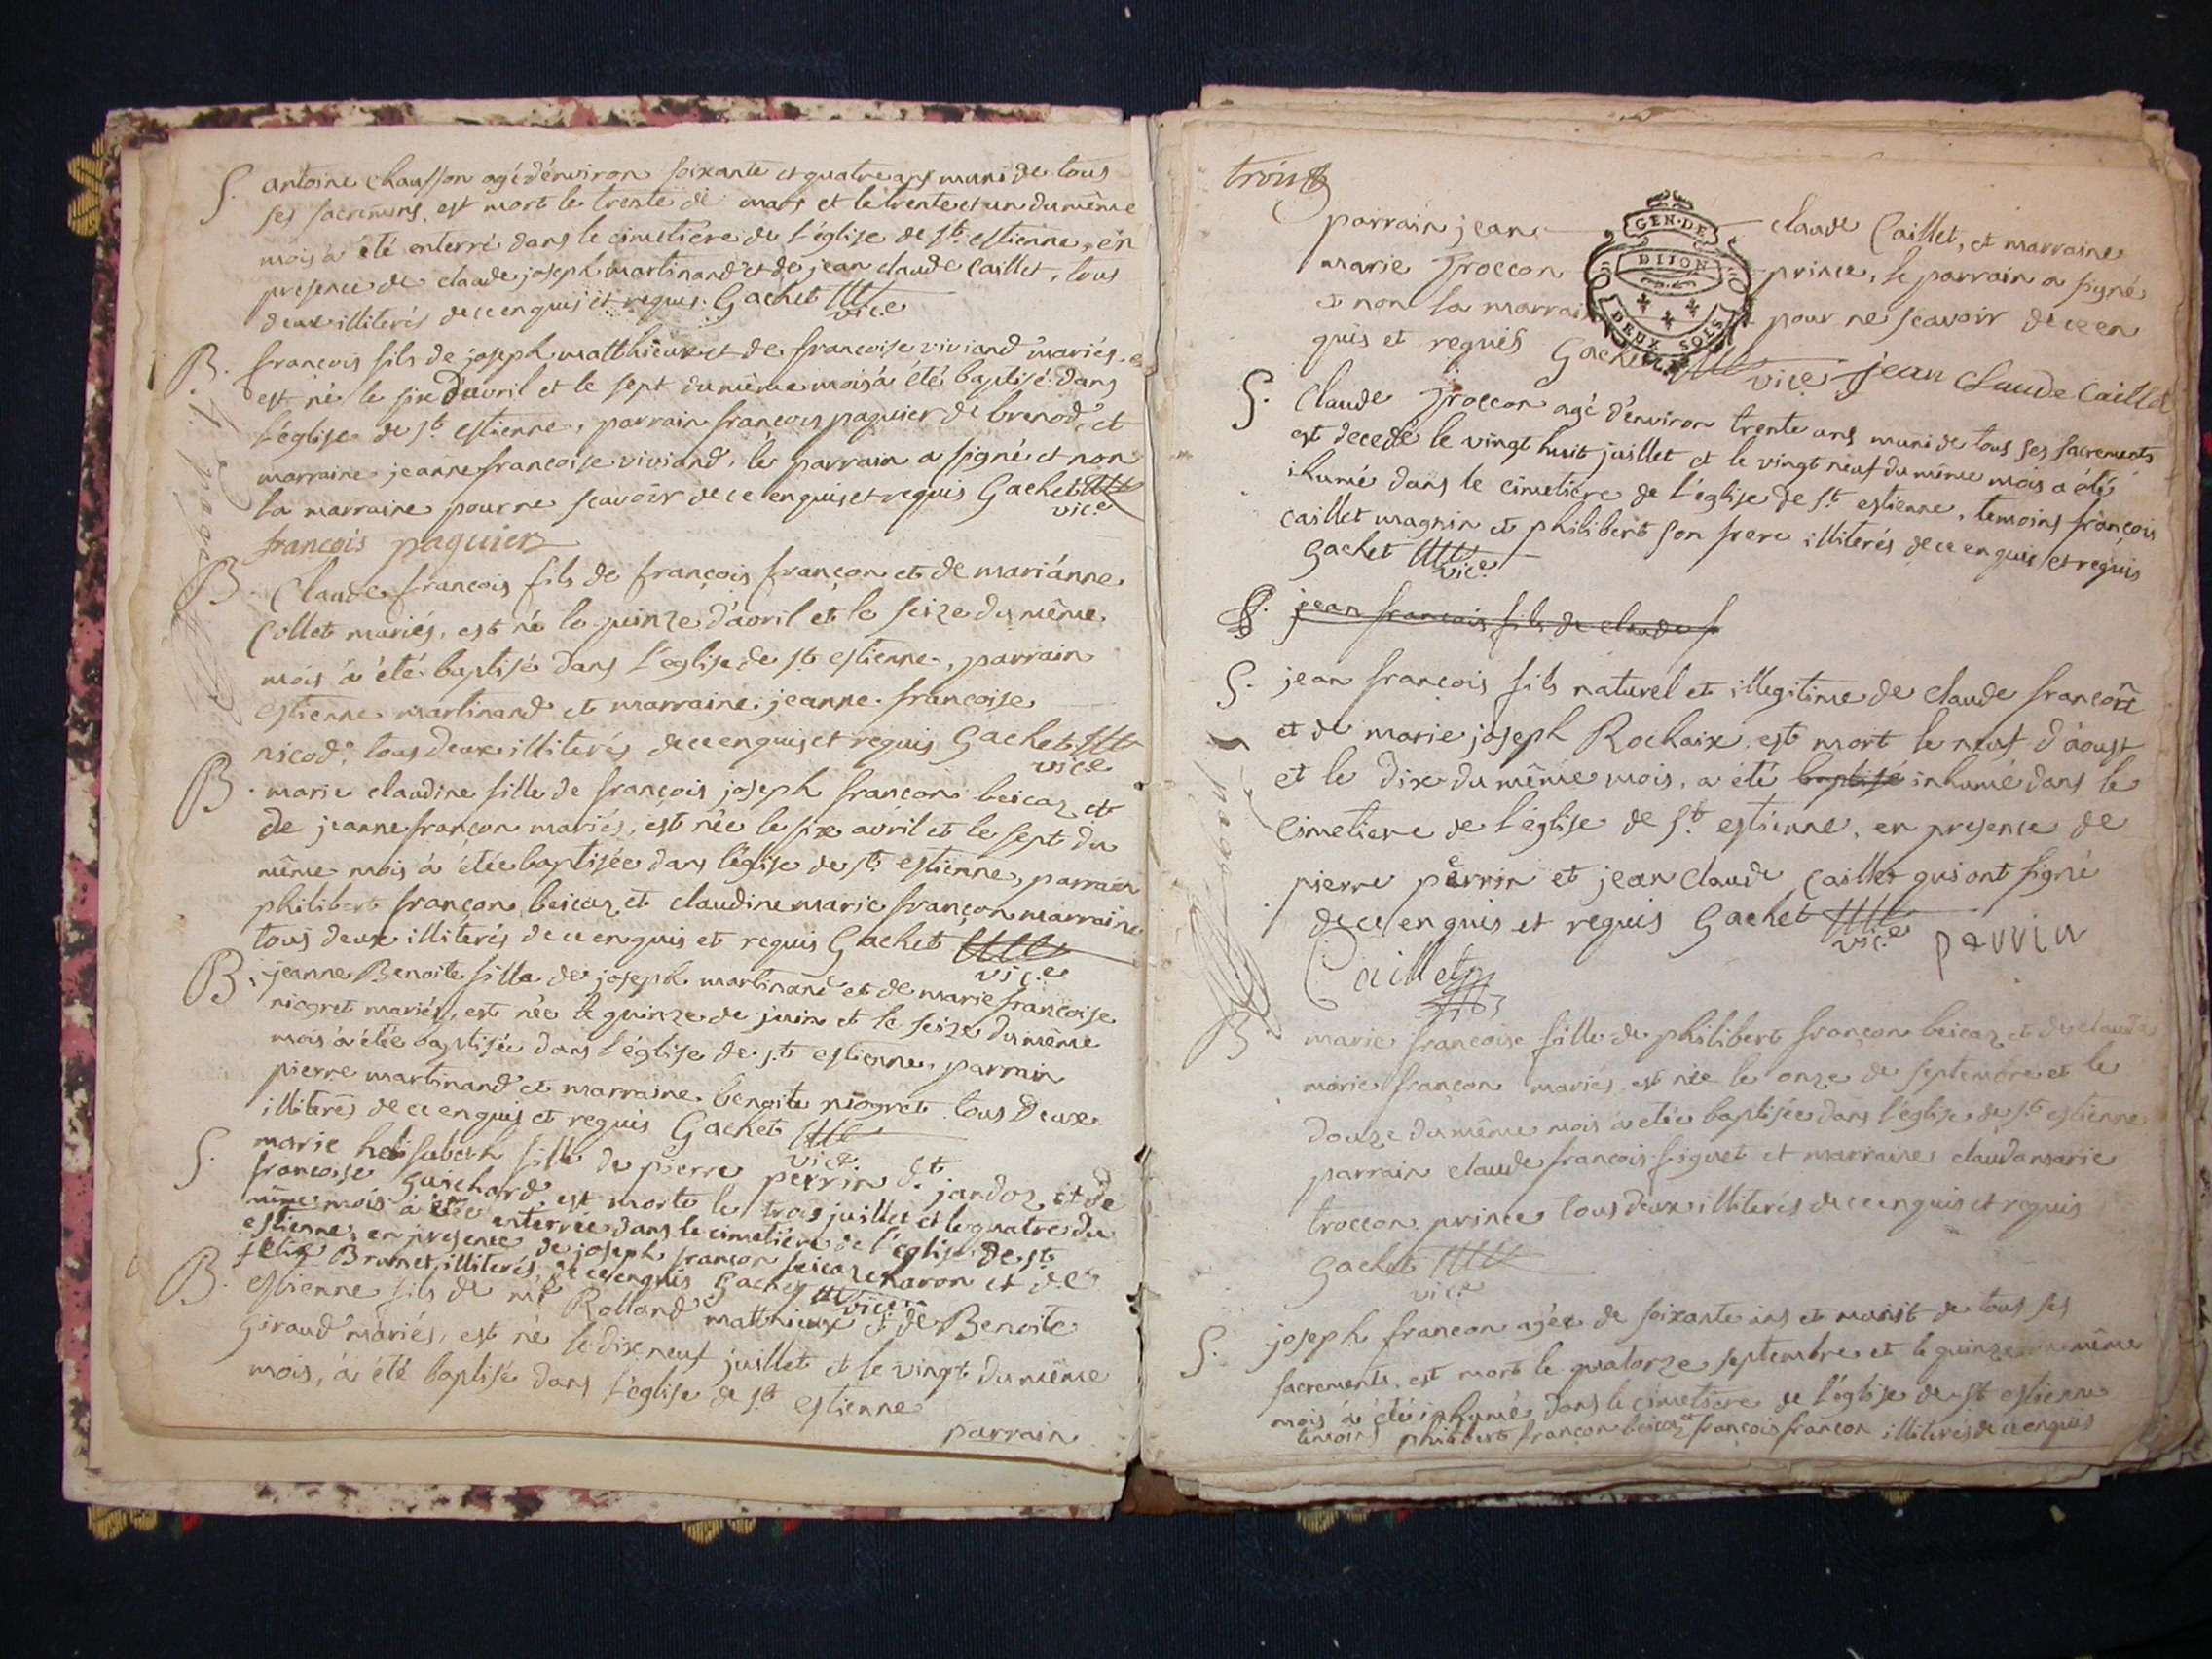 S. antoine chausson agé d'environ soixante et quatre ans muni de tous
ses sacremens, est mort le trente de mars et le trente et un du même
mois à été enterré dans le cimetière de l'église de st. estienne, en
presence de claude joseph martinand et de jean claude caillet, tous
deux illiterés de ce enquis et requis. Gachet
vice
B. françois fils de joseph matthieux et de francoise viviand mariés
est né le six d'avril et le sept du même mois à été baptisé dans
l'église de st. estienne, parrain françois paquier de brenod, et
marraine jeanne francoise viviand, le parrain a signé et non
la marraine pour ne scavoir de ce enquis et requis Gachet
vice
françois paquier
B. Claude francois fils de françois françon et de marianne
Collet mariés, est né le quinze d'avril et le seize du même
mois à été baptisé dans l'église de st estienne, parrain
estienne martinand et marraine jeanne francoise
nicod, tous deux illiterés de ce enquis et requis Gachet
vice
B. marie claudine fille de françois joseph françon beicaz et
de jeanne françon mariés, est née le six avril et le sept du
même mois à étée baptisée dans l'église de st. estienne, parrain
philibert françon beicaz et claudine marie françon marraine
tous deux illiterés de ce enquis et requis Gachet
vice
B. jeanne Benoite fille de joseph martinand et de marie francoise
niogret mariés, est née le quinze de juin et le seize du même
mois à étée baptisée dans l'église de st. estienne, parrain
pierre martinand et marraine benoite niogret tous deux
illiterés de ce enquis et requis Gachet
vice
S. marie helisabeth fille de pierre perrin d.t jandoz et de
francoise Guichard, est morte le trois juillet et le quatre du
même mois à étée enterrée dans le cimetière de l'église de st.
estienne, en presence de joseph françon beicaz charon et de
felix Brunet, illiterés, de ce enquis Gachet
vice
B. estienne fils de mr Rolland matthieux et de Benoite
Giraud mariés, est né le dix neuf juillet et le vingt du même
mois, à été baptisé dans l'église de st. estienne
parrain
trois
parrain jean claude Caillet, et marraine
marie Troccon prince, le parrain a signé
et non la marrai pour ne scavoir de ce en
quis et requis Gachet
vice jean claude caillet
GEN. DE
DIJON
DEUX SOLS
S. Claude Troccon agé d'environ trente ans muni de tous ses sacrements
est decedé le vingt huit juillet et le vingt neuf du même mois a été
ihumé dans le cimetiere de l'église de st. estienne, temoins françois
caillet magnin et philibert son frere illiterés de ce enquis et requis
Gachet
vice
jean francois fils de claude f
S. jean francois fils naturel et illegitime de claude francon
et de marie joseph Rochaix, est mort le neuf d'aoust
et le dix du même mois, a été baptisé inhumé dans le
cimetiere de l'église de st. estienne, en presence de
pierre perrin et jean claude caillet qui ont signé
de ce enquis et requis Gachet
vice perrin
Caillet
B. marie francoise fille de philibert françon beicaz et de claude
marie françon mariés, est née le onze de septembre et le
douze du même mois à étée baptisée dans l'église de st. estienne
parrain claude françois figuet et marraine claudamarie
troccon prince tous deux illiterés de ce enquis et requis
Gachet
vice
S. joseph francon agée de soixante ans et munit de tous ses
sacrements, est mort le quatorze septembre et le quinze du même
mois à été inhumé dans le cimetiere de l'église de st estienne
temoins philibert françon beicaz et françois françon illiterés de ce enquis